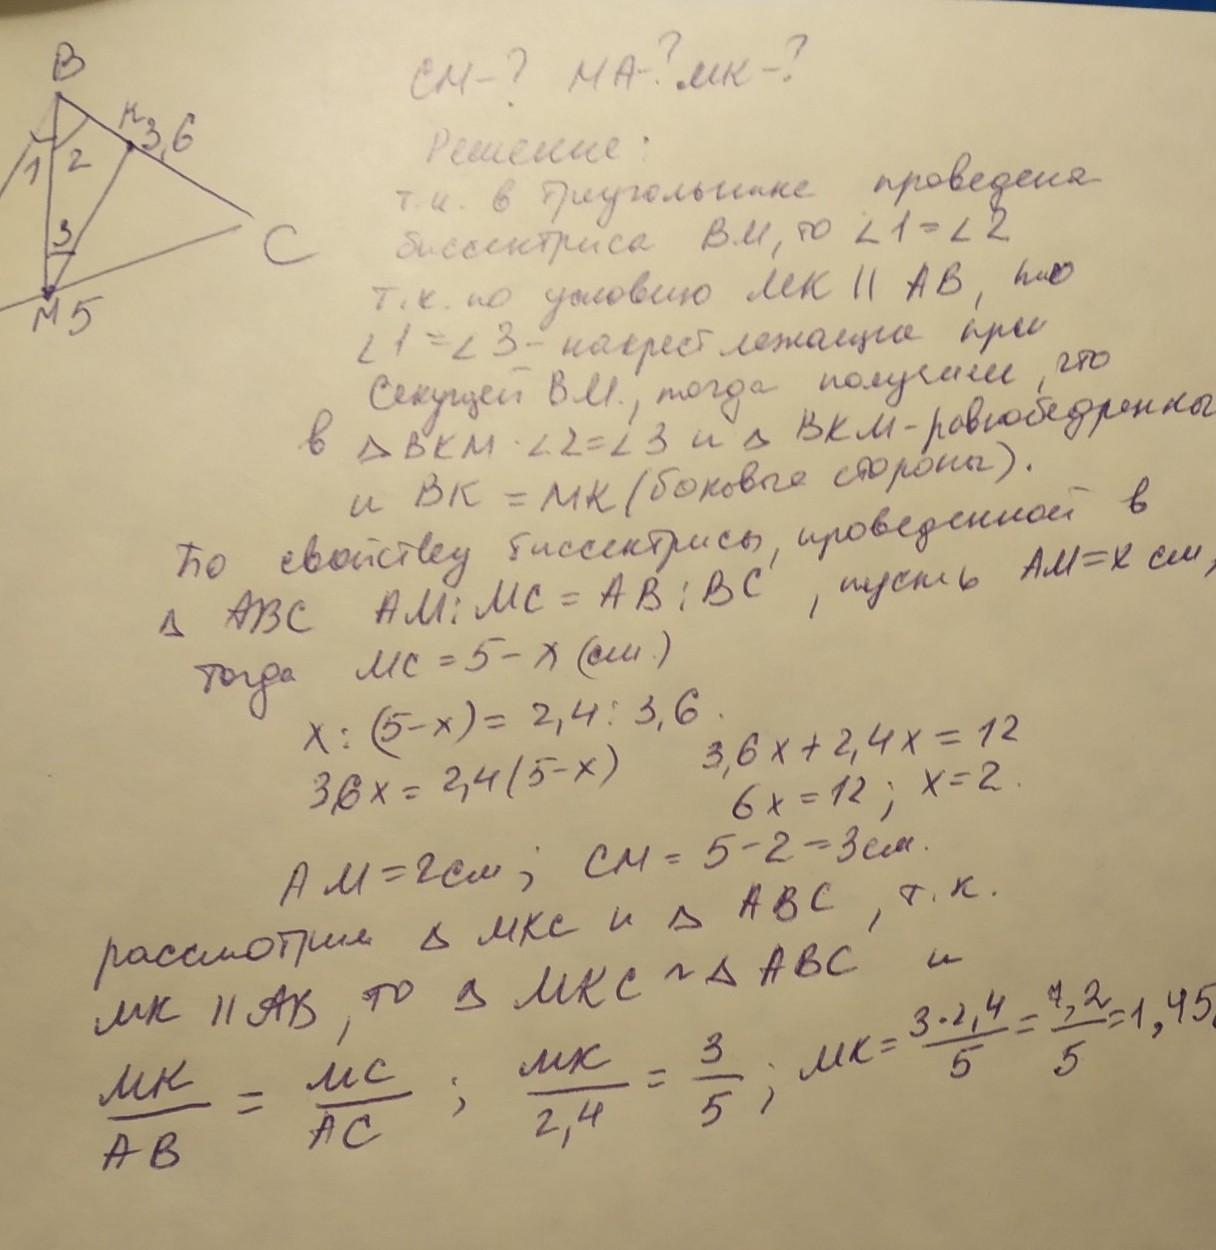 B
K
3,6
1 2
3
C
M 5
CM-? MA-? MK-?
Решение:
т.к. в треугольнике проведена
биссектриса BM, то ∠1=∠2
т.к. по условию MK || AB, то
∠1=∠3- накрест лежащие при
секущей BM., тогда получим, что
в △BKM ∠2=∠3 и △ BKM-равнобедренны
и BK = MK (боковые стороны).
По свойству биссектрисы, проведенной в
△ ABC AM:MC = AB:BC, пусть AM=x см,
тогда MC=5-x (см.)
x:(5-x)= 2,4:3,6.
3,6x= 2,4(5-x) 3,6x+2,4x=12
6x=12; x=2.
AM=2см; CM=5-2=3см.
рассмотрим △ MKC и △ ABC, т.к.
MK || AB, то △ MKC ~ △ ABC и
MK/AB = MC/AC ; MK/2,4 = 3/5 ; MK= 3·2,4/5 = 7,2/5 =1,45